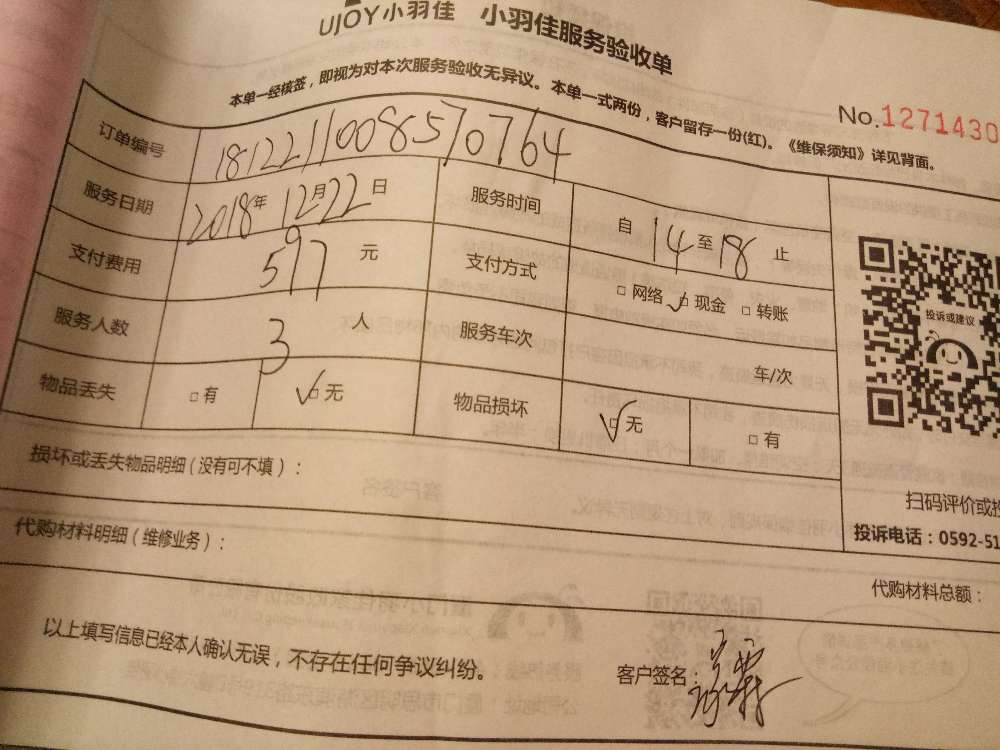 UJOY小羽佳 小羽佳服务验收单
本单一经核签，即视为对本次服务验收无异议。本单一式两份，客户留存一份(红)。《维保须知》详见背面。
No.1271430
订单编号 1812211008570764
服务日期 2018年 12月22日 服务时间 自 14 至 18 止
支付费用 597 元 支付方式 □ 网络 ☑ 现金 □ 转账
服务人数 3 人 服务车次 车/次
物品丢失 □ 有 ☑ 无 物品损坏 ☑ 无 □ 有
投诉或建议
损坏或丢失物品明细（没有可不填）：
扫码评价或投
投诉电话：0592-51
代购材料明细（维修业务）：
代购材料总额：
以上填写信息已经本人确认无误，不存在任何争议纠纷。 客户签名：